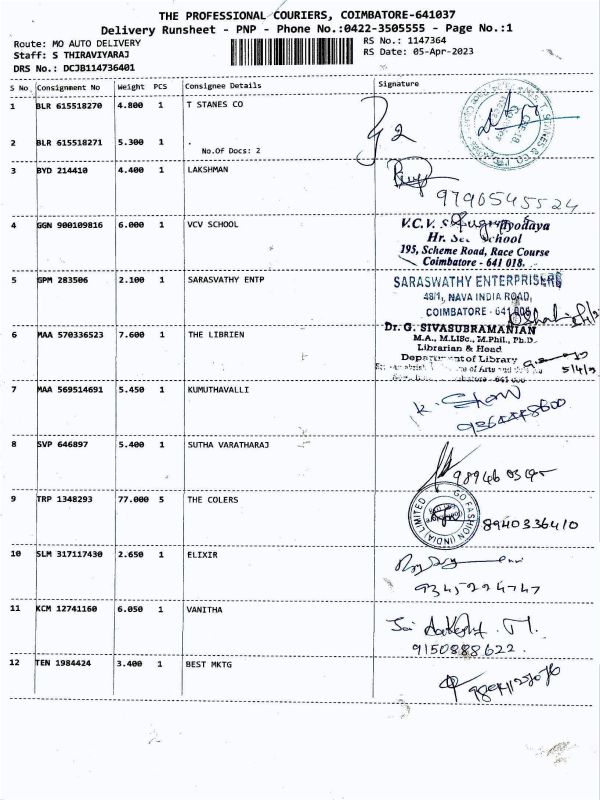 THE PROFESSIONAL COURIERS, COIMBATORE-641037
Delivery Runsheet - PNP - Phone No.:0422-3505555 - Page No.:1
Route: MO AUTO DELIVERY
RS No.: 1147364
Staff: S THIRAVIYARAJ
RS Date: 05-Apr-2023
DRS No.: DCJB114736401
S No Consignment No Weight PCS Consignee Details Signature
1 BLR 615518270 4.800 1 T STANES CO
2 BLR 615518271 5.300 1 .
No.Of Docs: 2
3 BYD 214410 4.400 1 LAKSHMAN
9790545524
4 GGN 900109816 6.000 1 VCV SCHOOL
V.C.V.
Hr. Sec School
195, Scheme Road, Race Course
Coimbatore - 641 018.
5 GPM 283506 2.100 1 SARASVATHY ENTP
SARASWATHY ENTERPRISERS
48/1, NAVA INDIA ROAD,
COIMBATORE - 641 006
6 MAA 570336523 7.600 1 THE LIBRIEN
Dr. G. SIVASUBRAMANIAN
M.A., M.LISc., M.Phil., Ph.D.
Librarian & Head
Department of Library
of Arts and
5/4/
7 MAA 569514691 5.450 1 KUMUTHAVALLI
8 SVP 646897 5.400 1 SUTHA VARATHARAJ
9 TRP 1348293 77.000 5 THE COLERS
GO FASHION (INDIA) LIMITED
8940336410
10 SLM 317117430 2.650 1 ELIXIR
11 KCM 12741160 6.050 1 VANITHA
9150888622.
12 TEN 1984424 3.400 1 BEST MKTG